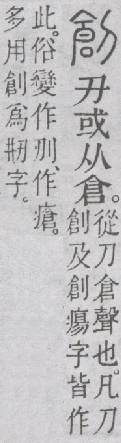 創 刅或从倉。從刀倉聲也。凡刀
創及創瘍字皆作
此。俗變作、作瘡。
多用創爲刱字。